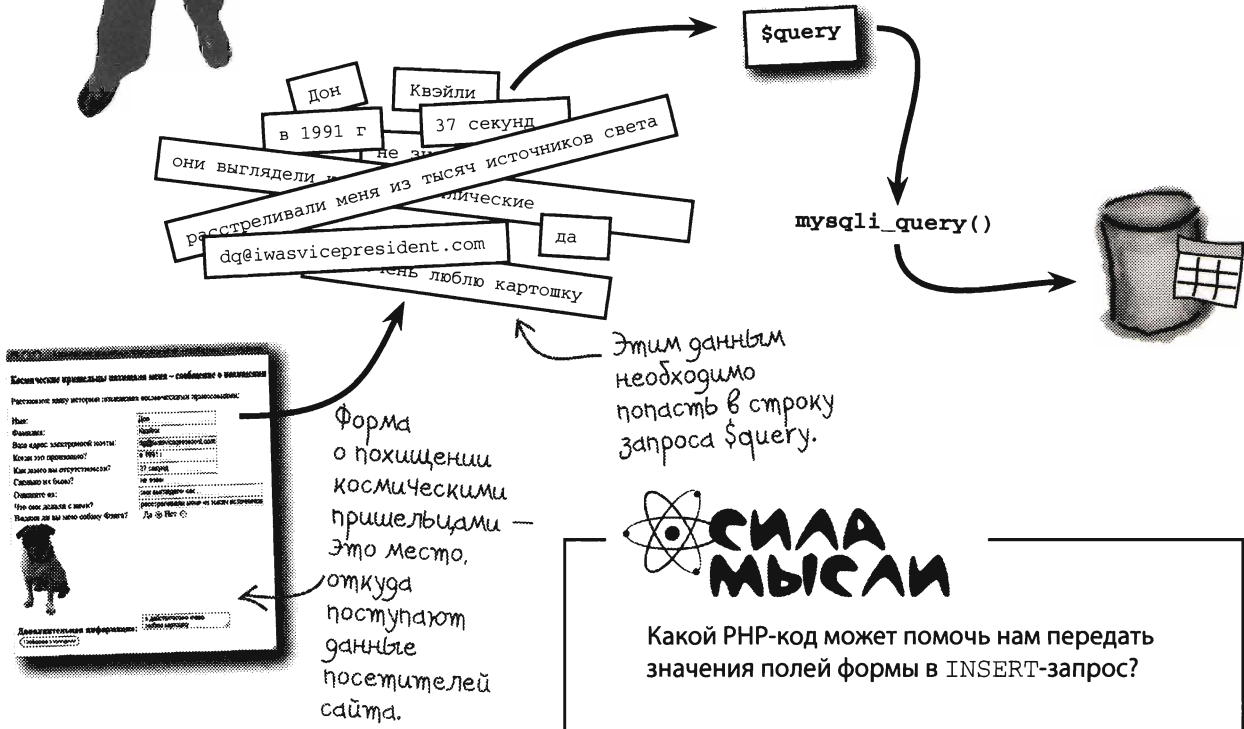 $query
Дон
Квэйли
в 1991 г
37 секунд
не
они выглядели
лические
расстреливали меня из тысяч источников света
dq@iwasvicepresident.com
да
люблю картошку
mysqli_query()
Этим данным
необходимо
попасть в строку
запроса $query.
Космические пришельцы похищали меня – сообщение о похищении
Расскажите вашу историю похищения космическими пришельцами:
Имя:
Дон
Фамилия:
Квэйли
Ваш адрес электронной почты:
dq@iwasvicepresident.com
Когда это произошло?
в 1991 г
Как долго вы отсутствовали?
37 секунд
Сколько их было?
не знаю
Опишите их:
они выглядели как
Что они делали с вами?
расстреливали меня из тысяч источников
Видели ли вы мою собаку Фэнга?
Да Нет
Дополнительная информация:
люблю картошку
Форма
о похищении
космическими
пришельцами —
это место,
откуда
поступают
данные
посетителей
сайта.
СИЛА
МЫСЛИ
Какой PHP-код может помочь нам передать
значения полей формы в INSERT-запрос?